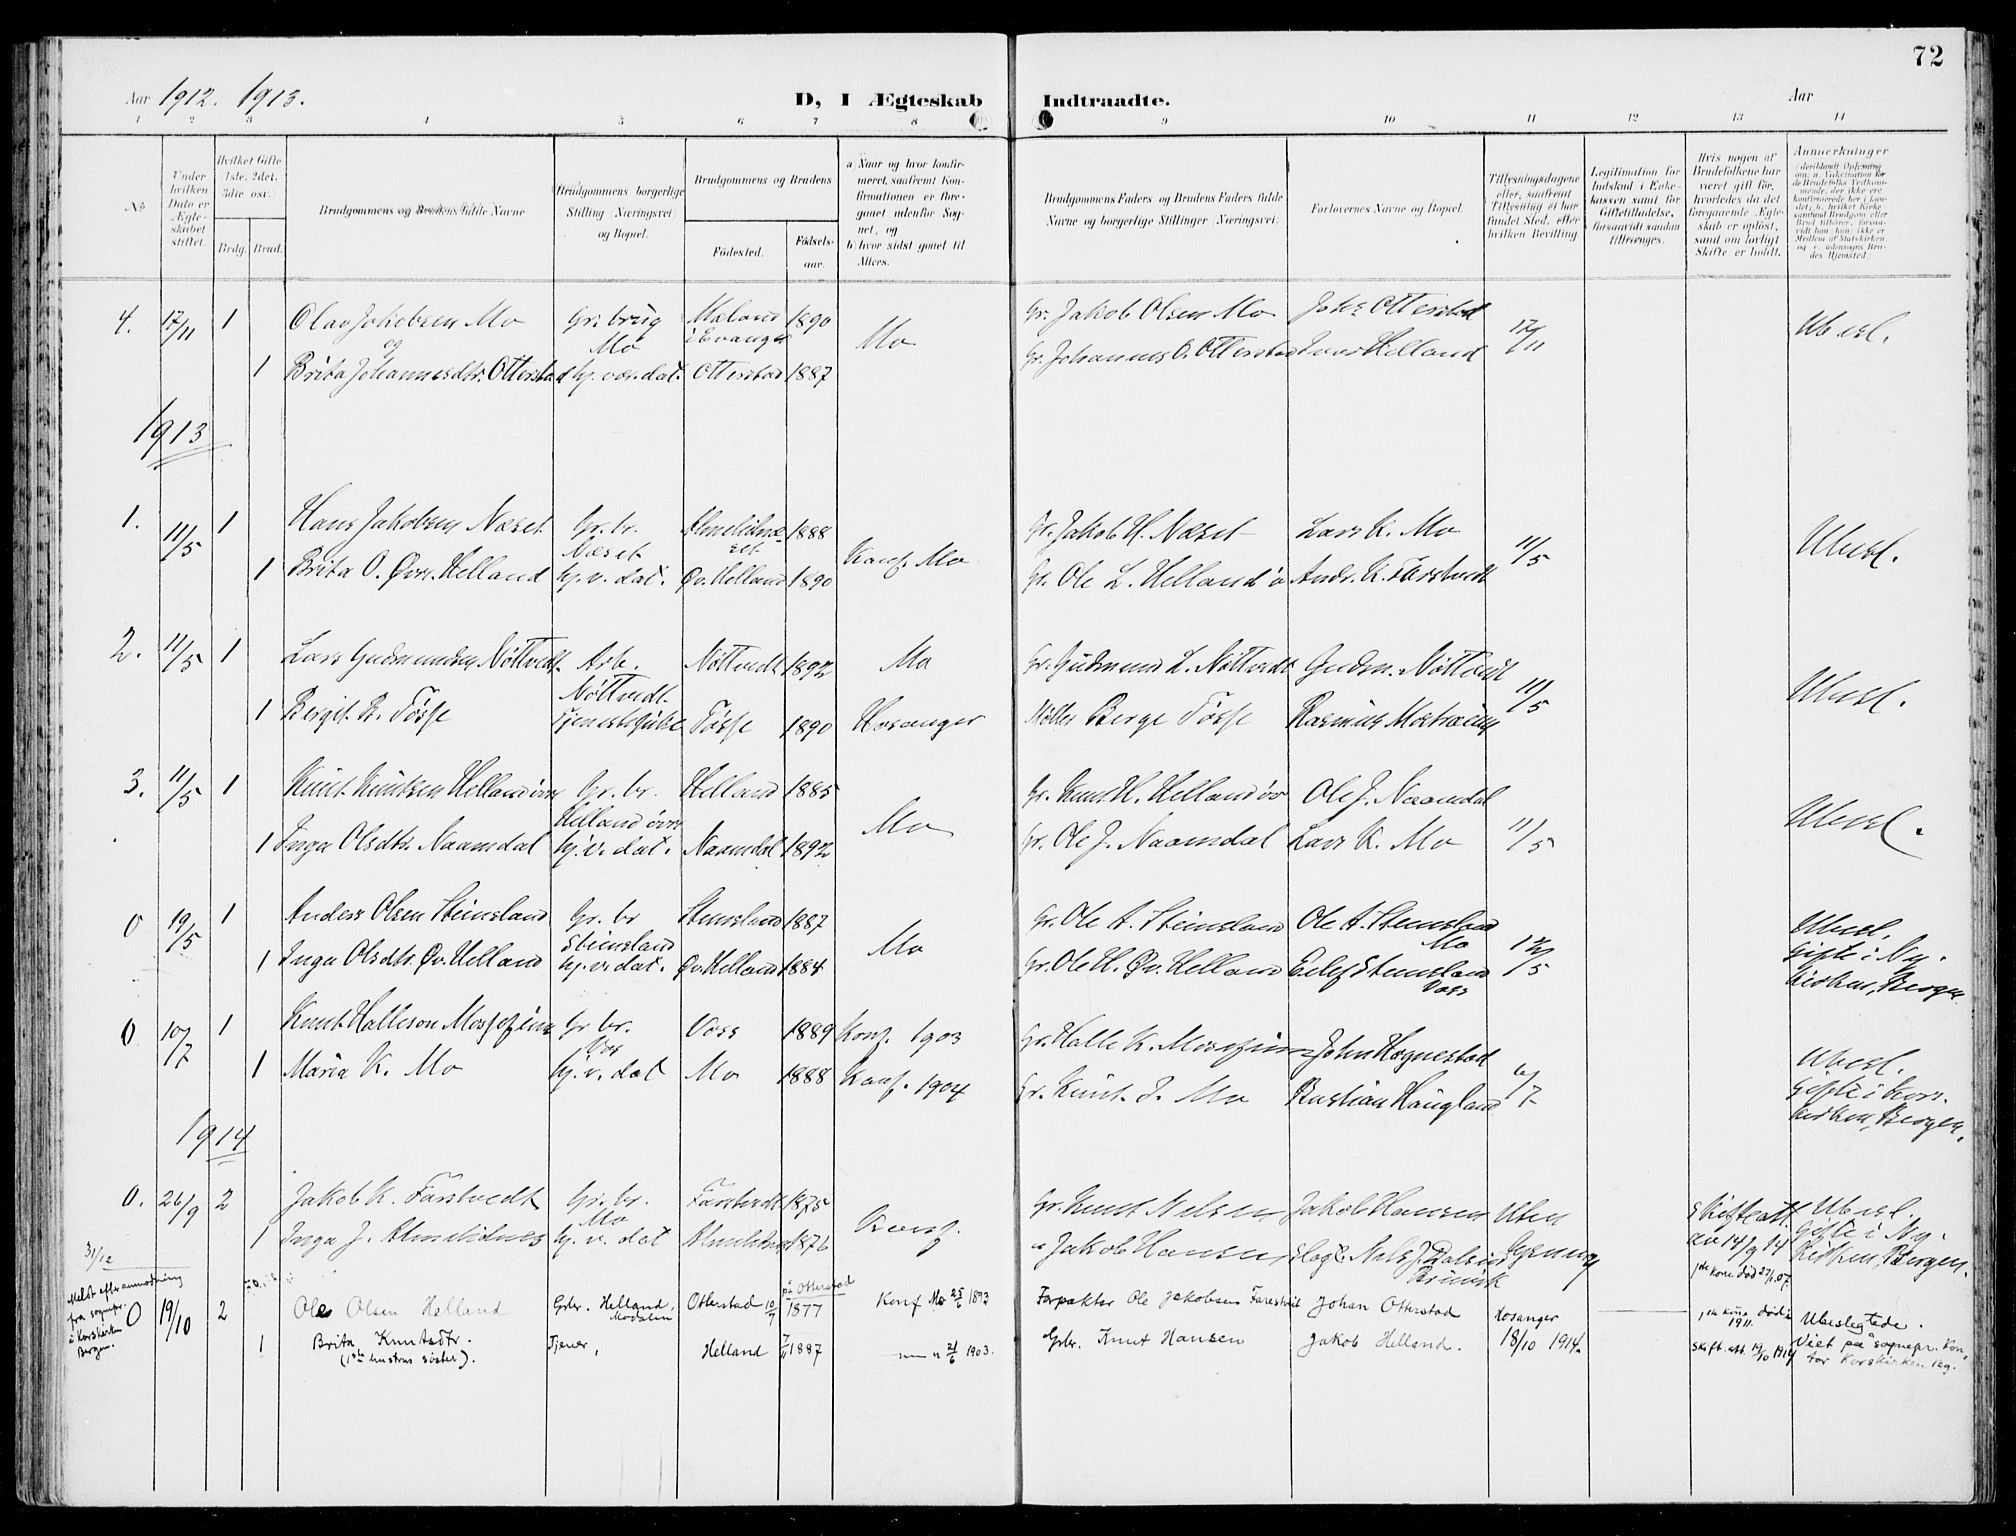 72
Aar 1912. 1913. D, I Ægteskab Indtraadte. Aar
1 2 3 4 5 6 7 8 9 10 11 12 13 14
No
Under hvilken Dato er Ægteskabet stiftet.
Hvilket Gifte 1ste, 2det, 3die osv.
Brdg. Brud.
Brudgommens og Brudens fulde Navne
Brudgommens borgerlige Stilling (Næringsvei) og Bopæl.
Brudgommens og Brudens
Fødested.
Fødsels-aar.
a) Naar og hvor konfirmeret, saafremt Konfirmationen er foregaaet udenfor Sognet, og
b) hvor sidst gaaet til Alters.
Brudgommens Faders og Brudens Faders fulde Navne og borgerlige Stillinger (Næringsvei).
Forlovernes Navne og Bopæl.
Tillysningsdagene eller, saafremt Tillysning ei har fundet Sted, efter hvilken Bevilling.
Legitimation for Indskud i Enkekassen samt for Giftetilladelse, forsaavidt saadan tiltrænges.
Hvis nogen af Brudefolkene har været gift før, hvorledes da det foregaaende Ægteskab er opløst, samt om lovligt Skifte er holdt.
Anmerkninger
4. 17/11 1 Olav Jakobsen Mo Gr. brug Mæland 1890 Gr. Jakob Olsen Mo Johs Otterstad
og Mo i Evanger Mo 17/11 Ubesl.
1 Brita Johannesdtr. Otterstad hj. vær. dat. Otterstad 1887 Gr. Johannes O. Otterstad Ivar Helland
1913
1. 11/5 1 Hans Jakobsen Næset Gr. br. 1888 Gr. Jakob H. Næset Lars K. Mo
Næset Konf. Mo 11/5 Ubesl.
1 Brita O. Øvr. Helland hj. v. dat. Øv. Helland 1890 Gr. Ole L. Helland ø Andr. K. Farstvedt
2. 11/5 1 Lars Gudmundsen Nöttvedt Arb. Nöttvedt 1892 Mo Gr. Gudmund L. Nöttvedt Gudm. Nöttvedt
Nöttvedt 11/5 Ubesl.
1 Bergit B. Tösse Tjenestepike Tösse 1890 Hosanger Möller Berge Tösse Rasmus Mostraum
3. 11/5 1 Knut Knutsen Helland övre Gr. br. Helland 1885 Gr. Knut H. Helland öv Ole J. Naamdal
Helland övre Mo Ubesl.
1 Inga Olsdtr. Naamdal hj. v. dat. Naamdal 1892 Gr. Ole J. Naamdal Lars K. Mo 11/5
0 19/5 1 Anders Olsen Steinsland Gr. br Steinsland 1887 Gr. Ole A. Steinsland Ole A. Steinsland Ubesl.
Steinsland Mo Mo Gifte i Ny-
1 Inga Olsdtr. Øv. Helland hj. v. dat. Øv. Helland 1884 Gr. Ole H. Øv. Helland Eilef Steinsland 12/5 kirken, Bergen
Voss
0 10/7 1 Knut Halleson Mossefinn Gr. br. Voss 1889 Konf. 1903 Gr. Halle K. Mossefinn John Hognestad
Vos Ubesl.
1 Maria K. Mo hj. v. dat Mo 1888 Konf. 1904 Gr. Knut J. Mo Bastian Haugland 6/7 Gifte i Kors-
kirken, Bergen.
1914
0. 26/9 2 Jakob K. Farstvedt Gr. br. Farstvedt 1875 Gr. Knut Nilsen Jakob Hansen Uten Skifteatt. Ubesl.
Mo Konf. av 14/9 14 Gifte i Ny-
1 Inga J. Almelidnes hj. v. dat 1876 " Jakob Hansen Slagt. Nils J. Dalseid kirken, Bergen.
1ste kone död 27/1 07.
31/12
Meldt efter anmodning fra sognepr. i Korskirken Bergen.
på Otterstad
0 19/10 2 Ole Olsen Helland Grbr. Helland, Modalen Otterstad 10/7 1877 Konf Mo 25/6 1893 Forpakter Ole Jakobsen Farestveit Johan Otterstad Hosanger 1ste kone död i 1911. Ubeslegtede.
1 Brita Knutsdtr. Tjener, Helland 7/11 1887 21/6 1903. Grbr. Knut Hansen Jakob Helland. 18/10 1914. Skift. att. 19/10 1914 Viet på sognepr. kon-
(1ste hustrus söster). tor Korskirken Bg.